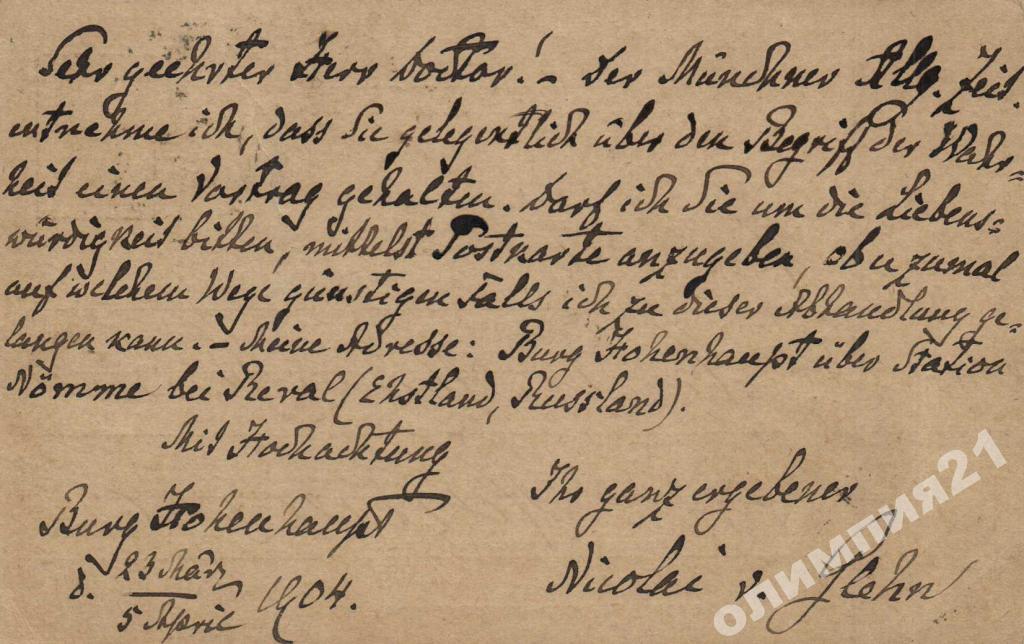 Sehr geehrter Herr Doctor! – Der Münchner Allg. Zeit.
entnehme ich, dass Sie gelegentlich über den Begriff der Wahr=
heit einen Vortrag gehalten. Darf ich Sie um die Liebens=
würdigkeit bitten, mittelst Postkarte anzugeben, ob u zumal
auf welchem Wege günstigen Falls ich zu dieser Abhandlung ge=
langen kann. – Meine Adresse: Burg Hohenhaupt über Station
Nömme bei Reval (Ehstland, Russland).
Mit Hochachtung
Ihr ganz ergebener
Burg Hohenhaupt
d. 23 März / 5 April 1904.
Nicolai v. Glehn
олимпия21